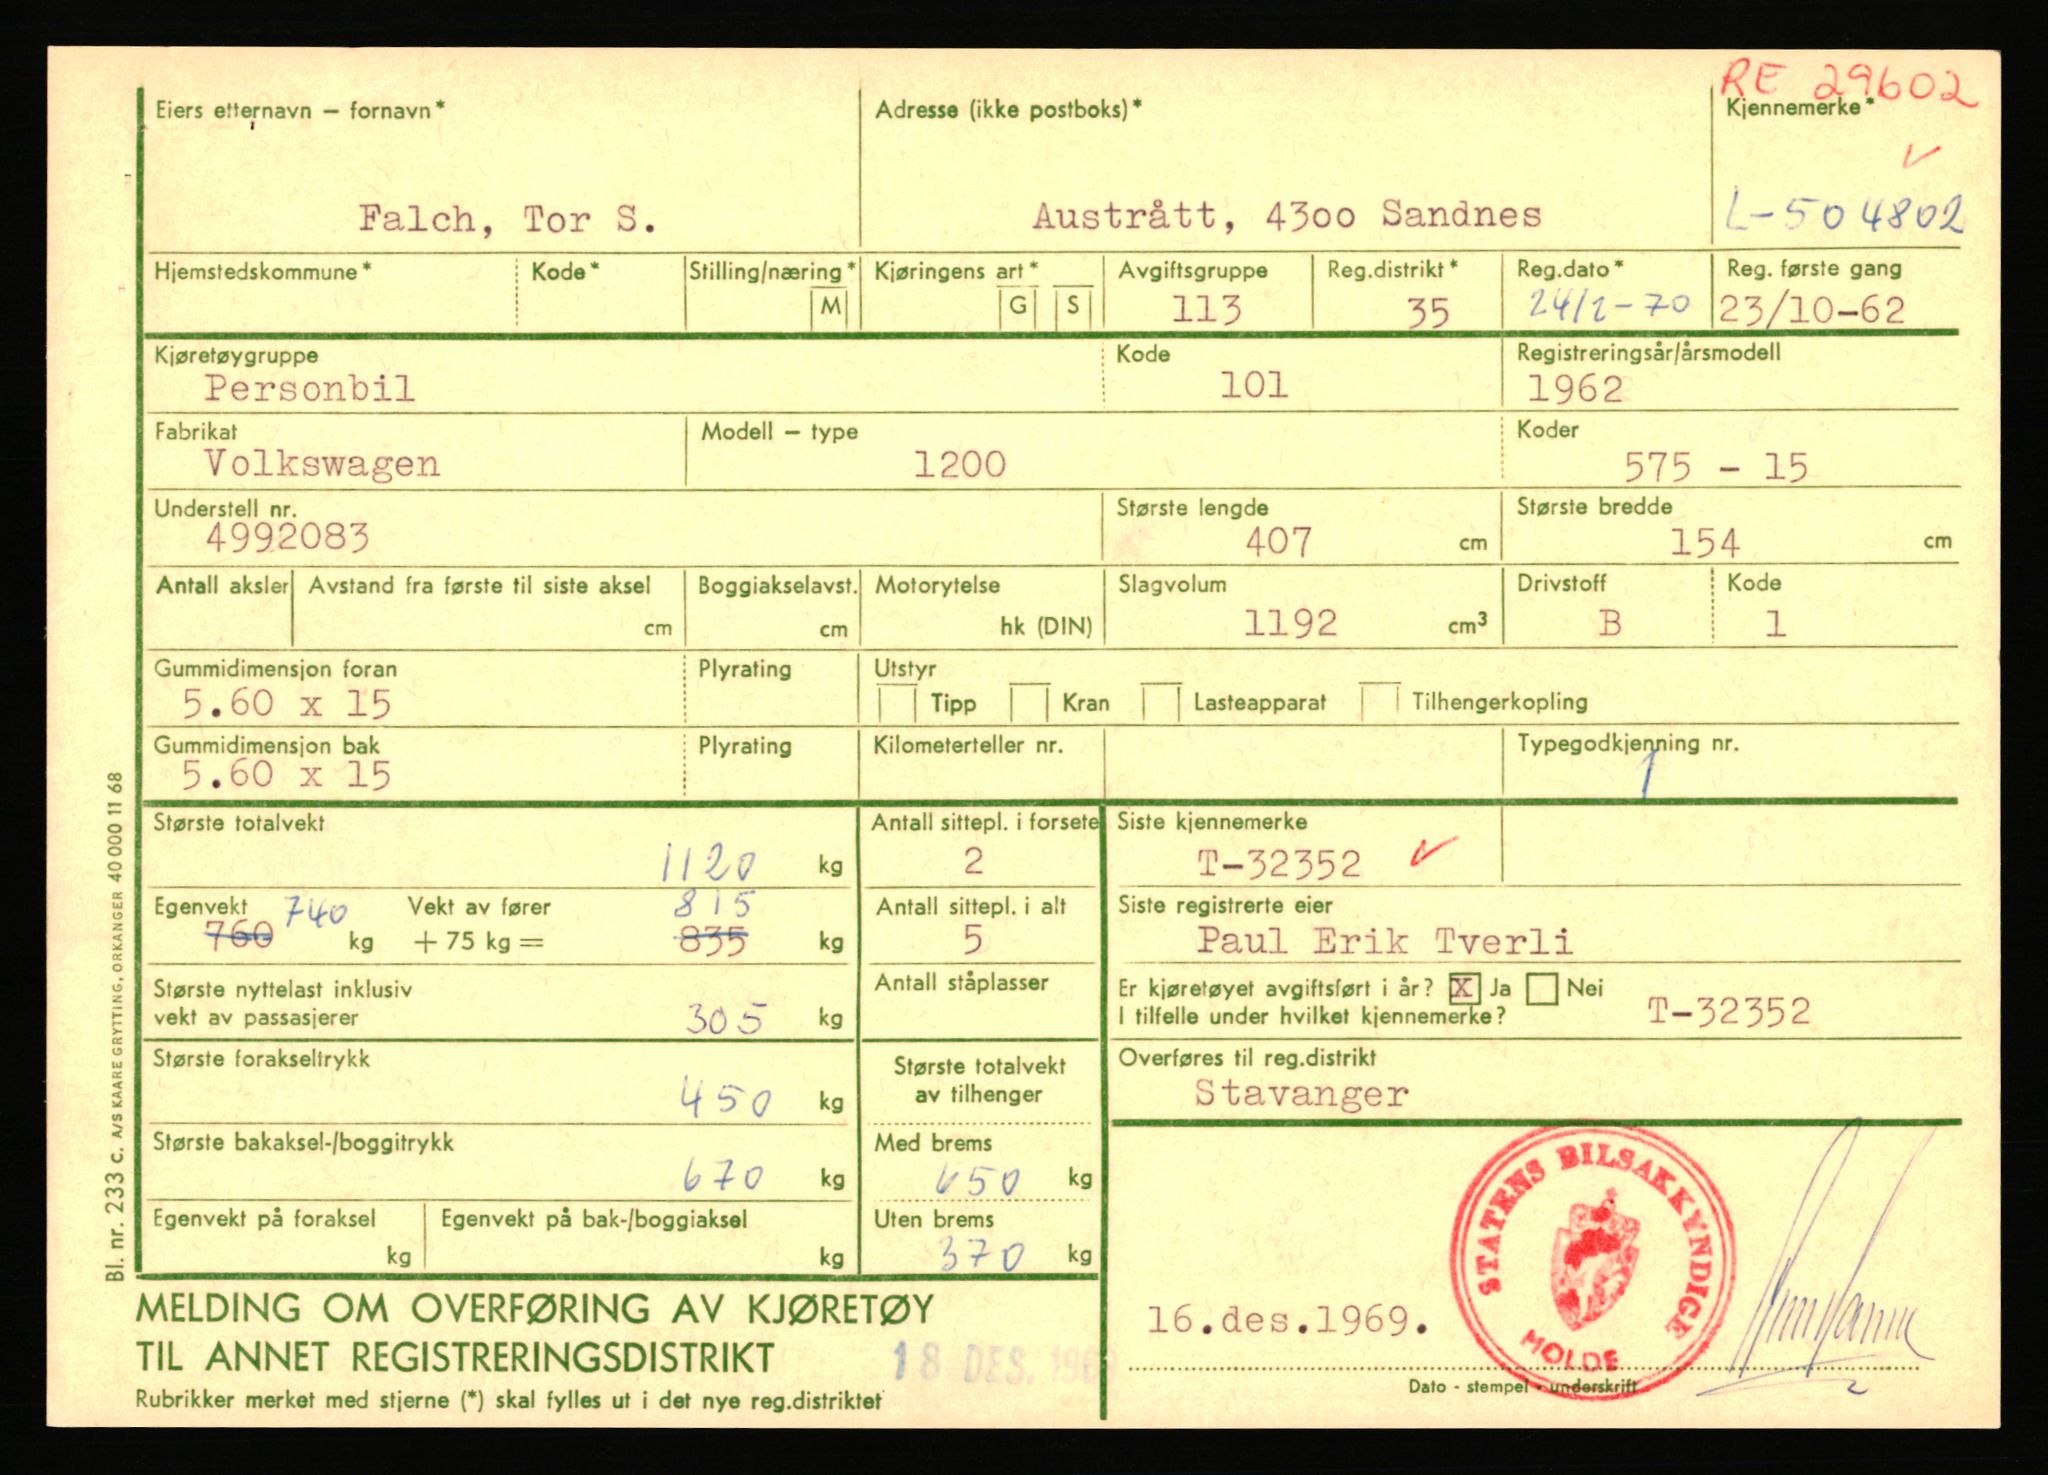 RE 29602
Eiers etternavn – fornavn* Adresse (ikke postboks)* Kjennemerke*
Falch, Tor S. Austrått, 4300 Sandnes L-504802
Hjemstedskommune* Kode* Stilling/næring* Kjøringens art* Avgiftsgruppe Reg.distrikt* Reg.dato* Reg. første gang
M G S 113 35 24/2-70 23/10-62
Kjøretøygruppe Kode Registreringsår/årsmodell
Personbil 101 1962
Fabrikat Modell – type Koder
Volkswagen 1200 575 - 15
Understell nr. Største lengde Største bredde
4992083 407 cm 154 cm
Antall aksler Avstand fra første til siste aksel Boggiakselavst. Motorytelse Slagvolum Drivstoff Kode
cm cm hk (DIN) 1192 cm³ B 1
Gummidimensjon foran Plyrating Utstyr
5.60 x 15 Tipp Kran Lasteapparat Tilhengerkopling
Gummidimensjon bak Plyrating Kilometerteller nr. Typegodkjenning nr.
5.60 x 15 1
Største totalvekt Antall sittepl. i forsete Siste kjennemerke
1120 kg 2 T-32352
Egenvekt 740 Vekt av fører 815 Antall sittepl. i alt Siste registrerte eier
760 kg + 75 kg = 835 kg 5 Paul Erik Tverli
Største nyttelast inklusiv Antall ståplasser Er kjøretøyet avgiftsført i år? X Ja Nei
vekt av passasjerer 305 kg I tilfelle under hvilket kjennemerke? T-32352
Største forakseltrykk Største totalvekt Overføres til reg.distrikt
450 kg av tilhenger Stavanger
Største bakaksel-/boggitrykk Med brems
670 kg 650 kg
Egenvekt på foraksel Egenvekt på bak-/boggiaksel Uten brems
kg kg 370 kg
STATENS BILSAKKYNDIGE
MOLDE
MELDING OM OVERFØRING AV KJØRETØY
16.des.1969.
TIL ANNET REGISTRERINGSDISTRIKT 18 DES. 1969
Dato - stempel - underskrift
Rubrikker merket med stjerne (*) skal fylles ut i det nye reg.distriktet
Bl. nr. 233 c. A/S KAARE GRYTTING, ORKANGER 40 000 11 68